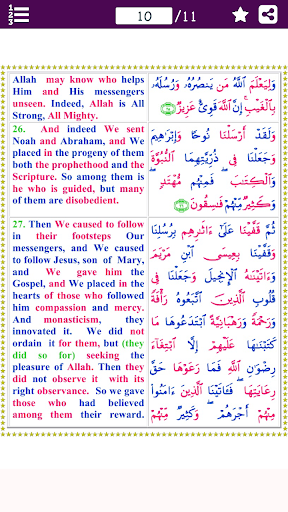 1
2
3
10 /11
Allah may know who helps
Him and His messengers
unseen. Indeed, Allah is All
Strong, All Mighty.
وَلِيَعْلَمَ ٱللَّهُ مَن يَنصُرُهُۥ وَرُسُلَهُۥ
بِٱلْغَيْبِ ۚ إِنَّ ٱللَّهَ قَوِىٌّ عَزِيزٌ ﴿٢٥﴾
26. And indeed We sent
Noah and Abraham, and We
placed in the progeny of them
both the prophethood and the
Scripture. So among them is
he who is guided, but many
of them are disobedient.
وَلَقَدْ أَرْسَلْنَا نُوحًا وَإِبْرَٰهِيمَ
وَجَعَلْنَا فِى ذُرِّيَّتِهِمَا ٱلنُّبُوَّةَ
وَٱلْكِتَٰبَ ۖ فَمِنْهُم مُّهْتَدٍ ۖ
وَكَثِيرٌ مِّنْهُمْ فَٰسِقُونَ ﴿٢٦﴾
27. Then We caused to follow
in their footsteps Our
messengers, and We caused
to follow Jesus, son of Mary,
and We gave him the
Gospel, and We placed in the
hearts of those who followed
him compassion and mercy.
And monasticism, they
innovated it. We did not
ordain it for them, but (they
did so for) seeking the
pleasure of Allah. Then they
did not observe it with its
right observance. So We gave
those who had believed
among them their reward.
ثُمَّ قَفَّيْنَا عَلَىٰٓ ءَاثَٰرِهِم بِرُسُلِنَا
وَقَفَّيْنَا بِعِيسَى ٱبْنِ مَرْيَمَ
وَءَاتَيْنَٰهُ ٱلْإِنجِيلَ وَجَعَلْنَا فِى
قُلُوبِ ٱلَّذِينَ ٱتَّبَعُوهُ رَأْفَةً
وَرَحْمَةً وَرَهْبَانِيَّةً ٱبْتَدَعُوهَا مَا
كَتَبْنَٰهَا عَلَيْهِمْ إِلَّا ٱبْتِغَآءَ
رِضْوَٰنِ ٱللَّهِ فَمَا رَعَوْهَا حَقَّ
رِعَايَتِهَا ۖ فَـَٔاتَيْنَا ٱلَّذِينَ ءَامَنُوا۟
مِنْهُمْ أَجْرَهُمْ ۖ وَكَثِيرٌ مِّنْهُمْ